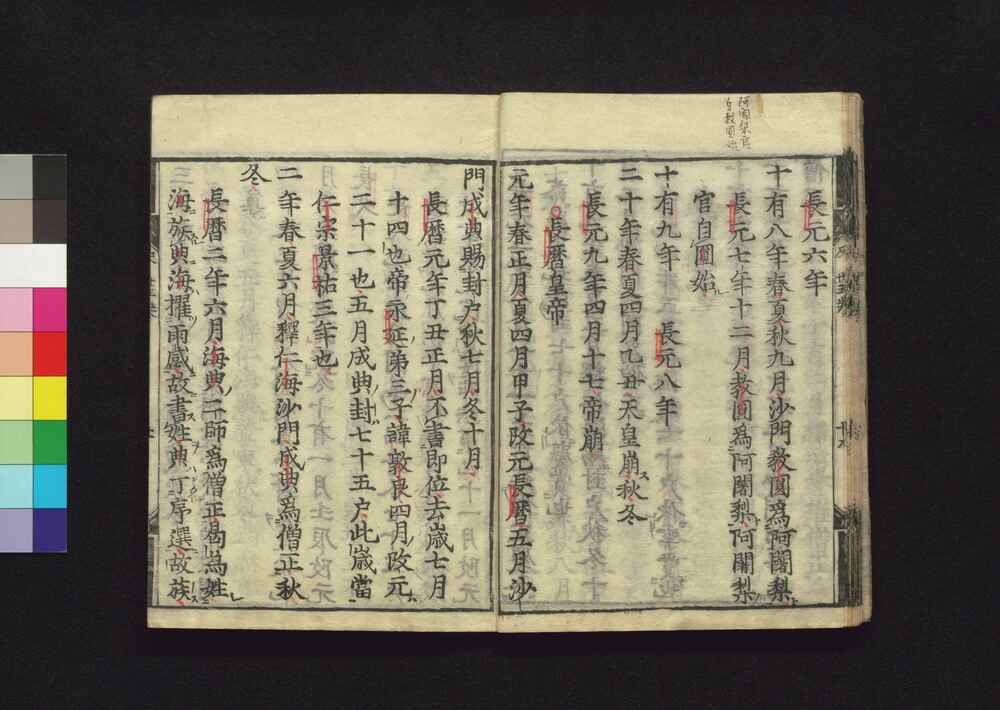 長元六年
十有八年春夏秋九月沙門教圓爲阿闍梨
長元七年十二月教圓爲阿闍梨阿闍梨
官自圓始
十有九年 長元八年
二十年春夏四月乙丑天皇崩秋冬
長元九年四月十七帝崩
長暦皇帝
元年春正月夏四月甲子改元長暦五月沙
門成典賜封户秋七月冬十月
長暦元年丁丑正月不書即位去歳七月
十四也帝永延弟三子諱敦良四月改元
二十一也五月成典封七十五户此歳當
仁宗景祐三年也
二年春夏六月釋仁海沙門成典爲僧正秋
冬
長暦二年六月海典二師爲僧正曷為姓
海族典海擢雨感故書姓典丁序選故族